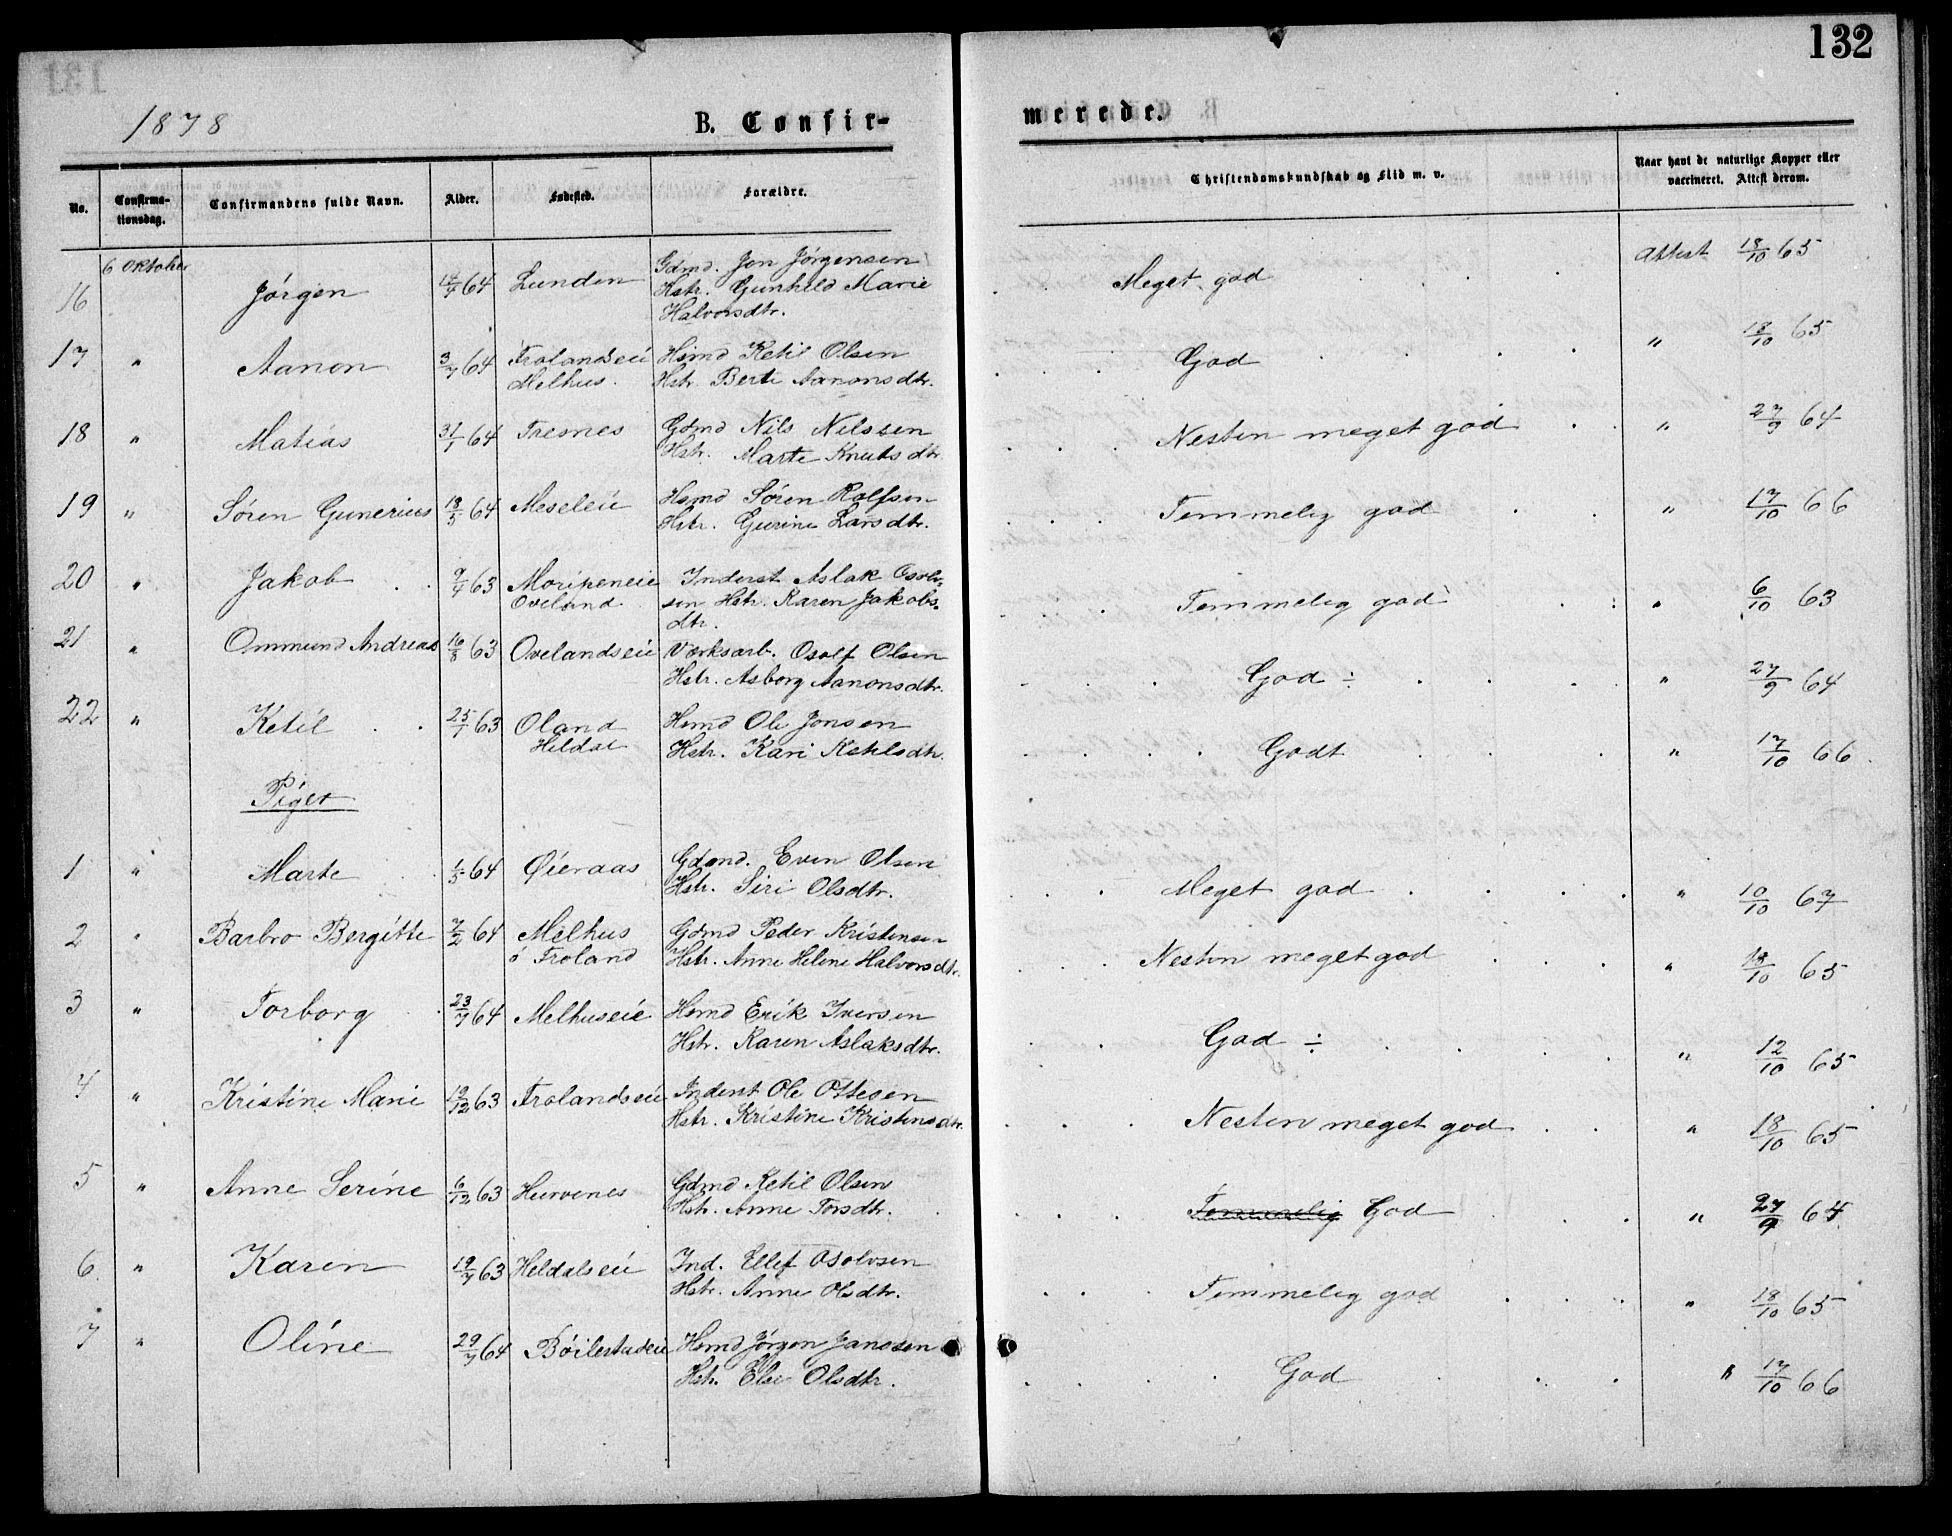 132
1878
B. Confir-
merede.
No.
Confirma-
tionsdag.
Confirmandens fulde Navn.
Alder.
Fødested.
Forældre.
Christendomskundskab og Flid m. v.
Naar havt de naturlige Kopper eller
vaccineret. Attest derom.
16 6 Oktober Jørgen 64 Lunden Gdmd. Jon Jørgensen
Hstr. Gunhild Marie
Halvorsdtr.
Meget god Attest 18/10 65
17 " Aanon 3/7 64 Trolandseie Hsmd Ketil Olsen
Melhus. Hstr. Berte Aanonsdtr.
God " 18/10 65
18 " Matias 31/1 64 Tresnes Gdmd Nils Nilssen
Hstr. Marte Knutsdtr
Nesten meget god " 27/9 64
19 " Søren Gunerius 64 Meseleie Hsmd Søren Rolfsen
Hstr. Gurine Larsdtr.
Temmelig god " 17/10 66
20 " Jakob 9/4 63 Moripeneie Inderst Aslak Osolv-
Oveland sen Hstr. Karen Jakobs-
dtr.
Temmelig god " 6/10 63
21 " Ommund Andreas 16/8 63 Ovelandseie Værksarb. Osolf Olsen
Hstr. Asborg Aanonsdtr.
God ÷ " 27/9 64
22 " Ketil 25/7 63 Oland Hsmd Ole Jonsen
Heldal Hstr. Kari Ketilsdtr.
Godt " 17/10 66
Piger
1 " Marte 1/5 64 Øieraas Gdmd. Even Olsen
Hstr. Siri Olsdtr.
Meget god " 10/10 67
2 " Barbro Bergitte 7/2 64 Melhus Gdmd Peder Kristensen
i Troland Hstr. Anne Helene Halvorsdtr.
Nesten meget god " 18/10 65
3 " Torborg 23/7 64 Melhuseie Hsmd Erik Iversen
Hstr. Karen Aslaksdtr.
God ÷ " 12/10 65
4 " Kristine Marie 63 Trolandseie Inderst Ole Ottesen
Hstr. Kristine Kristensdtr.
Nesten meget god " 18/10 65
5 " Anne Serine 6/12 63 Hurvenes Gdmd Ketil Olsen
Hstr. Anne Torsdtr.
Temmelig God " 27/9 64
6 " Karen 19/7 63 Heldalseie Ind. Ellef Osolvsen
Hstr. Anne Olsdtr.
Temmelig god " 18/10 65
7 " Oline 29/7 64 Bøilestadeie Hsmd Jørgen Janssen
Hstr. Else Olsdtr.
God " 17/10 66